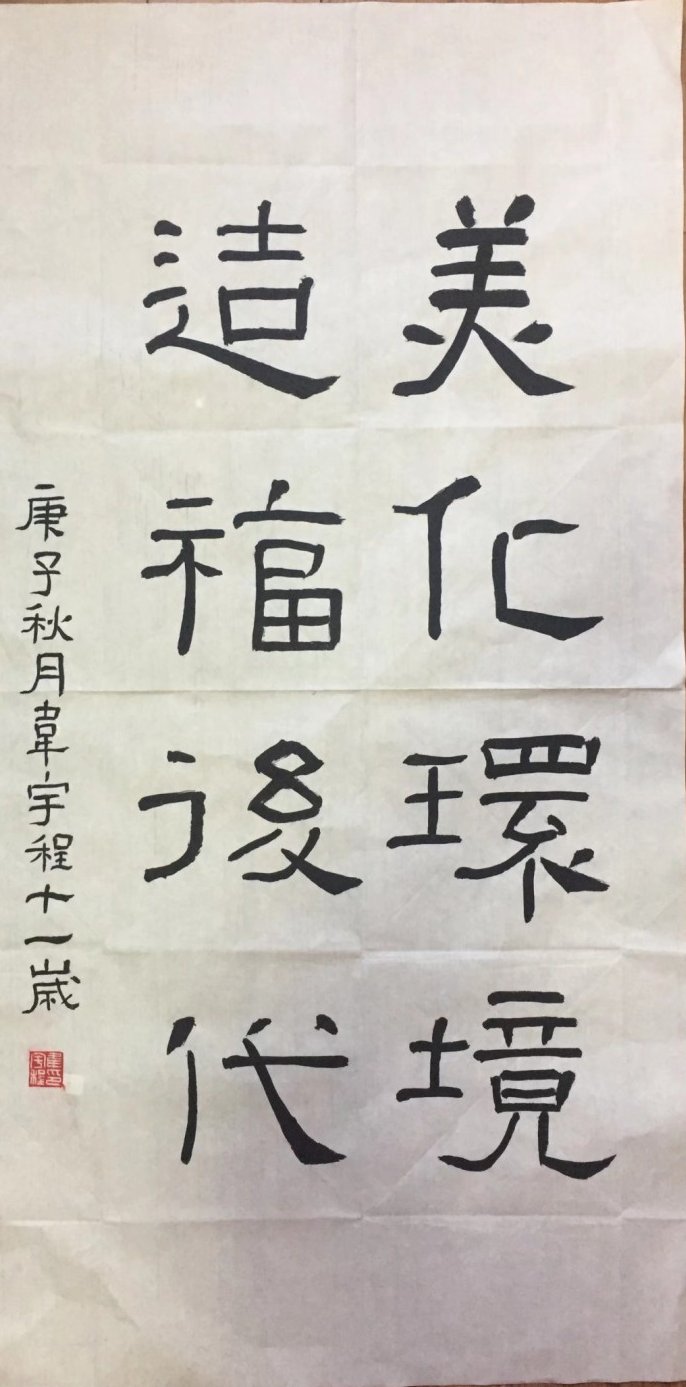 美化環境
造福後代
庚子秋月韋宇程十一歲
韋宇程印